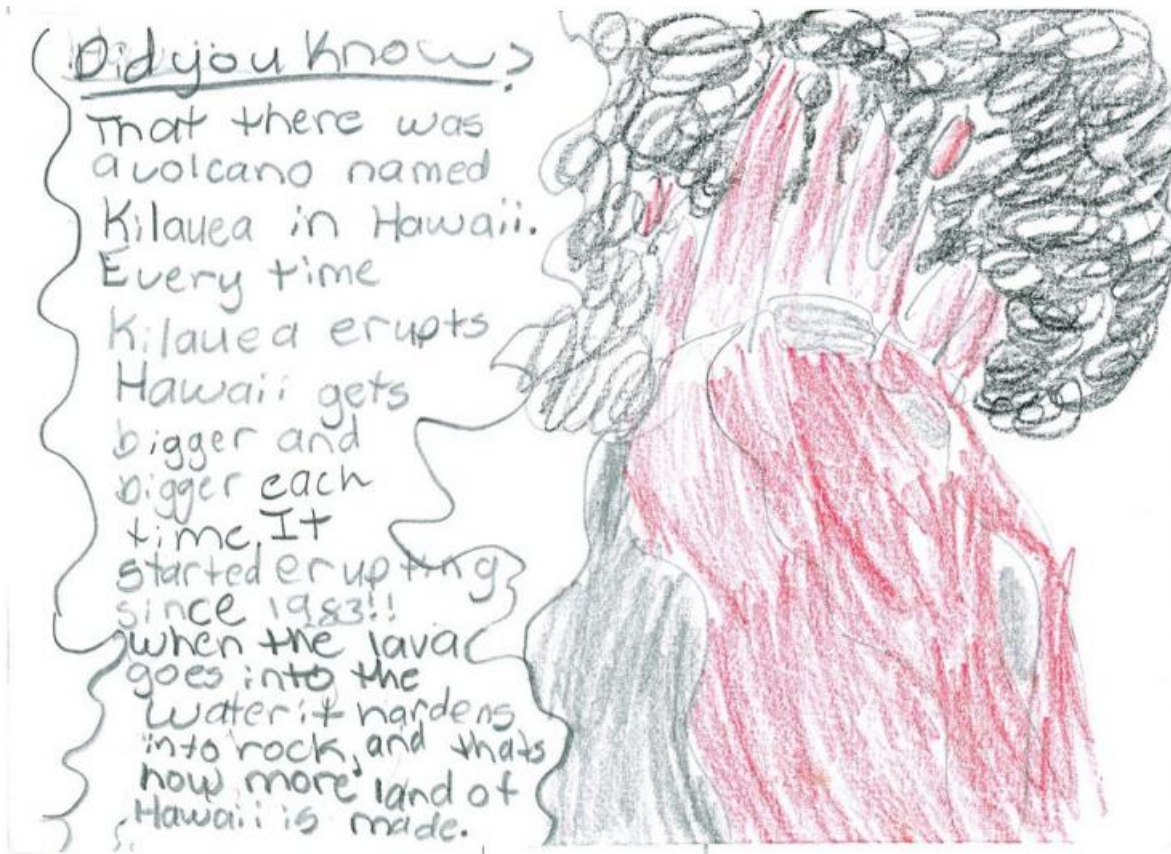 Did you Know?
That there was
a volcano named
Kilauea in Hawaii.
Every time
Kilauea erupts
Hawaii gets
bigger and
bigger each
time. It
started erupting
since 1983!!
when the lava
goes into the
water it hardens
into rock, and thats
how more land of
Hawaii is made.